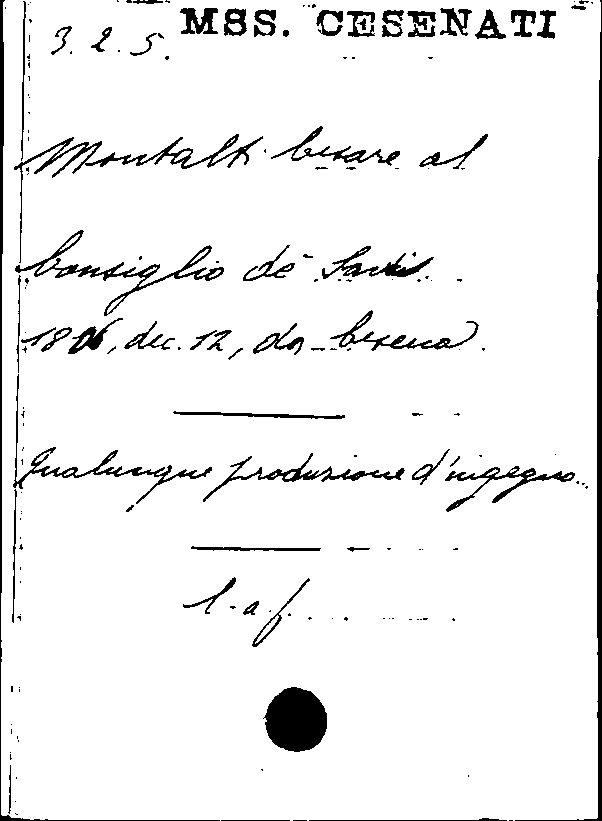 MSS. CESENATI
3. 2. 5.
Montalti Cesare al
Consiglio de' Savi
1806, dec. 12, da Cesena.
Qualunque produzione d'ingegno..
l. a. f.